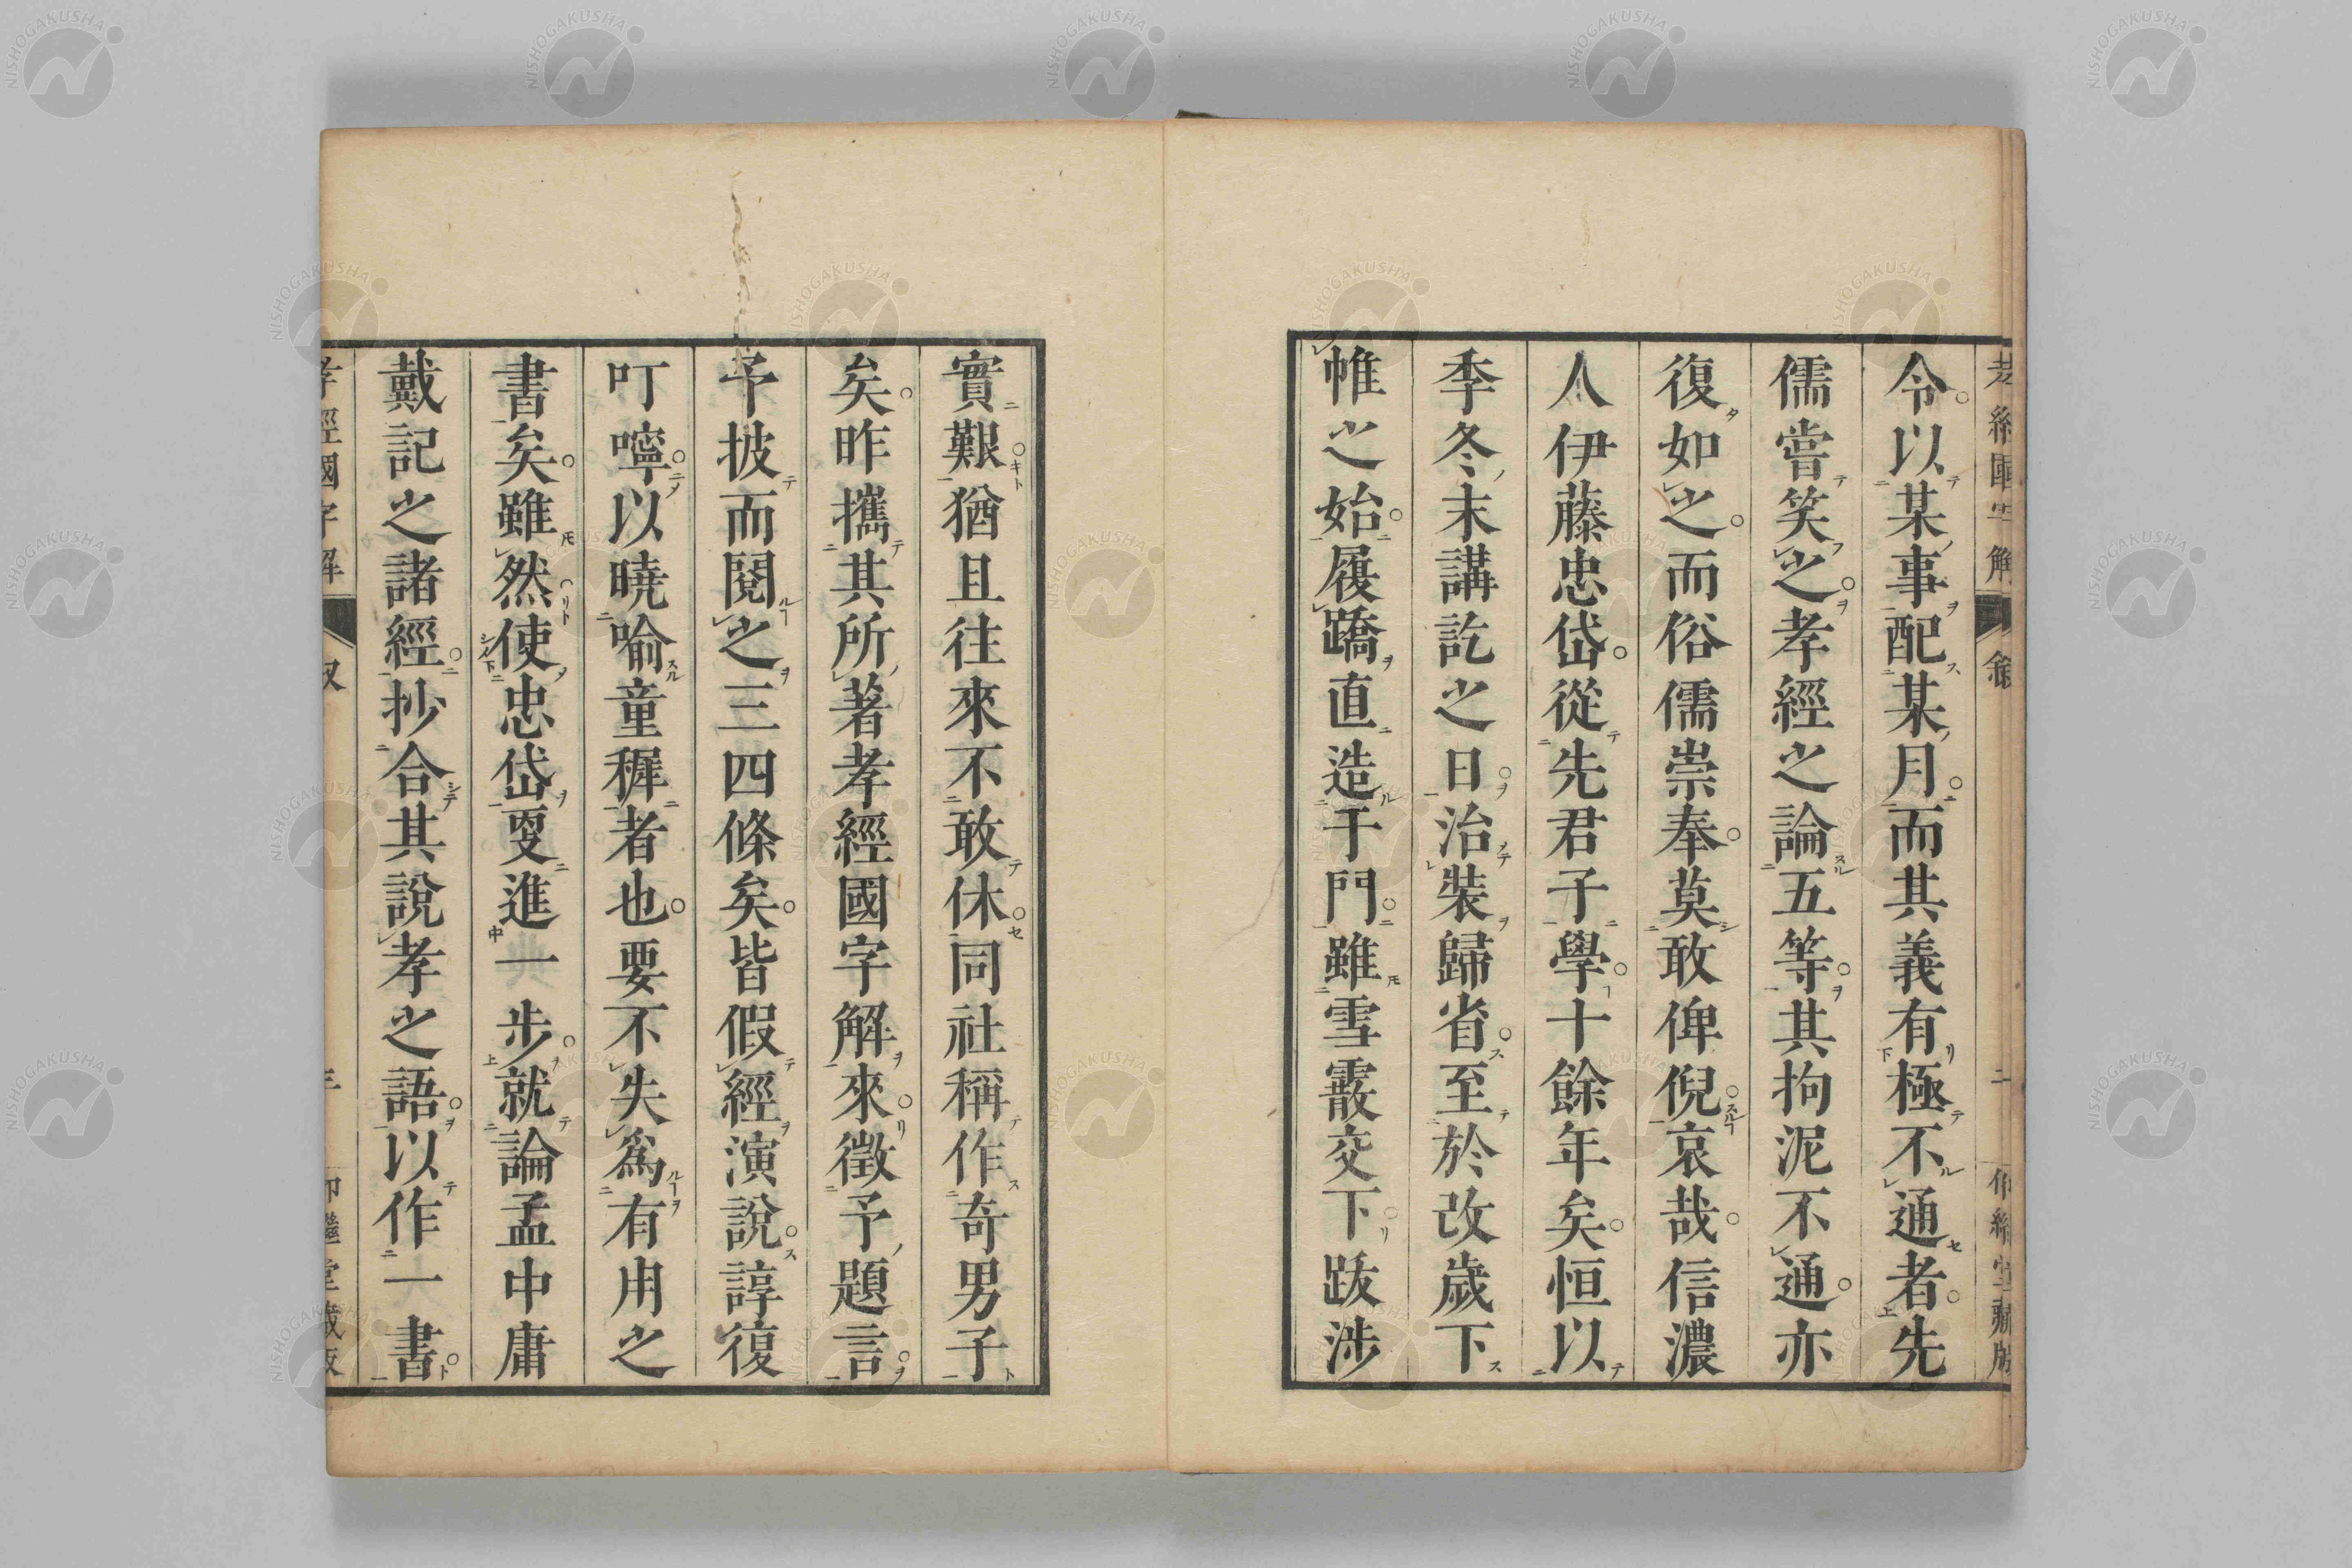 令以某事配某月而其義有極不通者先
儒嘗笑之孝經之論五等其拘泥不通亦
復如之而俗儒崇奉莫敢俾倪哀哉信濃
人伊藤忠岱從先君子學十餘年矣恒以
季冬末講訖之日治裝歸省至於改歲下
帷之始履蹻直造于門雖雪霰交下跋涉
實艱猶且往來不敢休同社稱作奇男子
矣昨攜其所著孝經國字解來徵予題言
予披而閱之三四條矣皆假經演說諄復
叮嚀以曉喻童穉者也要不失爲有用之
書矣雖然使忠岱更進一步就論孟中庸
戴記之諸經抄合其說孝之語以作一書
孝經國字解 叙
NISHOGAKUSHA